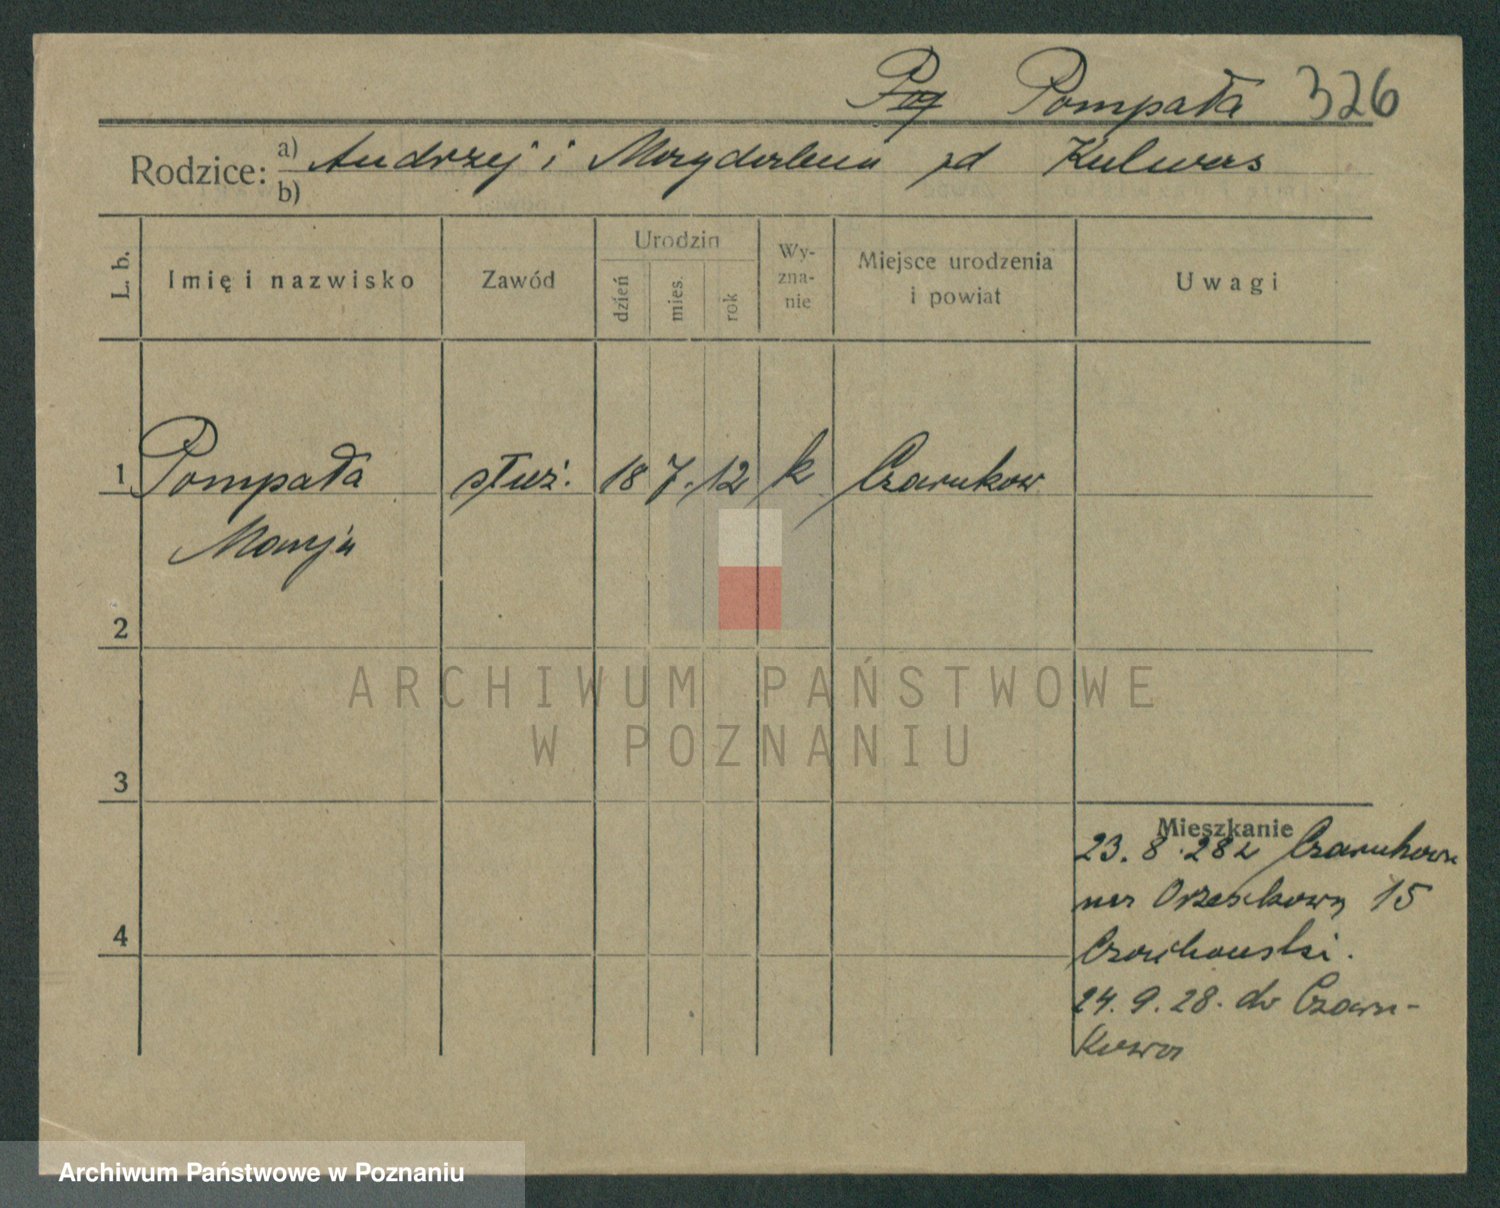 Pompała 326
Rodzice: a) Andrzej i Magdalena zd Kulwas
b)
L. b.
Imię i nazwisko
Zawód
Urodzin
dzień
mies.
rok
Wy-
zna-
nie
Miejsce urodzenia
i powiat
Uwagi
1 Pompała służ. 18 7. 12 k Czarnkow
Marija
2
ARCHIWUM PAŃSTWOWE
W POZNANIU
3
Mieszkanie
23. 8. 28 z Czarnkowa
na Orzeszkowy 15
4
24. 9. 28. do Czarn-
kowa
Archiwum Państwowe w Poznaniu